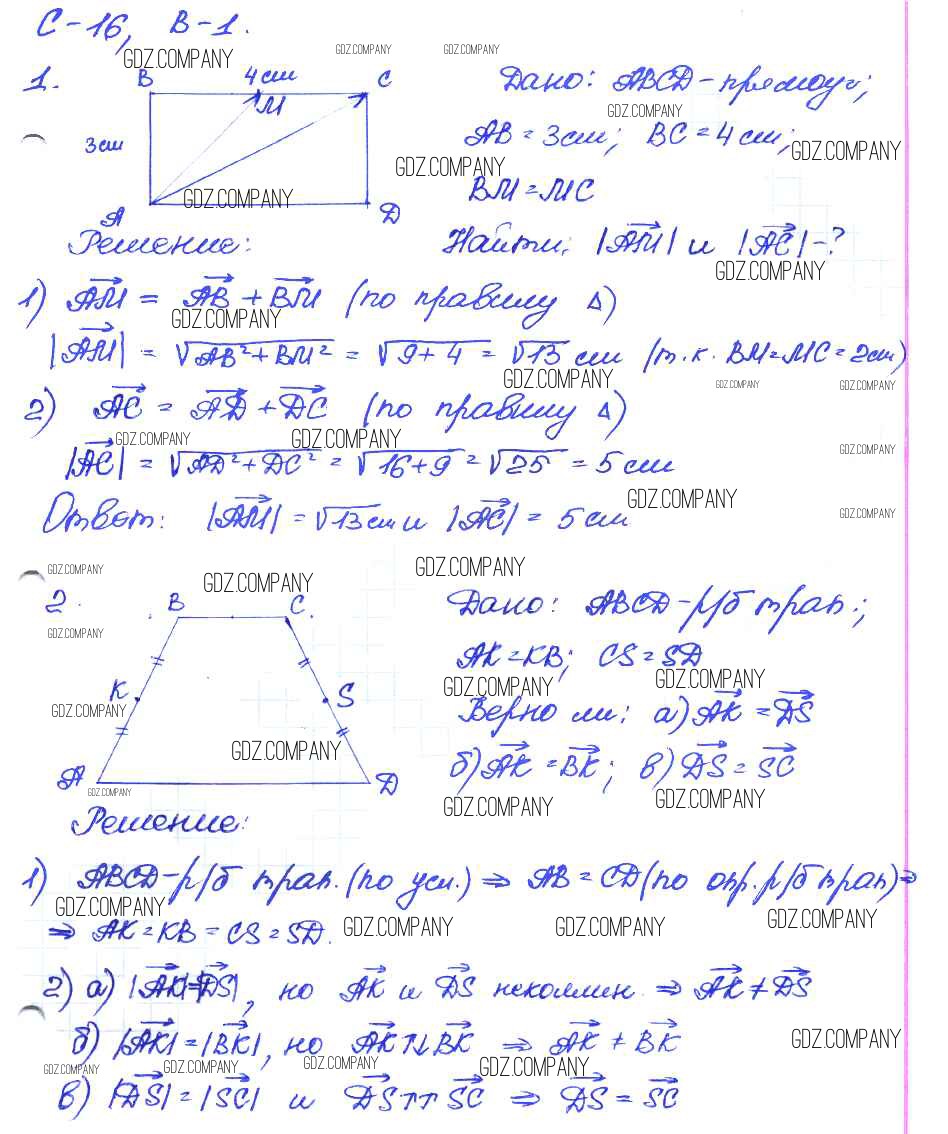 С-16, В-1.
1.
B 4см C
M
3см
A D
Дано: ABCD-прямоуг;
AB = 3см; BC = 4см;
BM = MC
Найти: |AM| и |AC| -?
Решение:
1) AM = AB + BM (по правилу Δ)
|AM| = √AB²+BM² = √9+4 = √13 см (т.к. BM=MC=2см)
2) AC = AD + DC (по правилу Δ)
|AC| = √AD²+DC² = √16+9 = √25 = 5 см
Ответ: |AM| = √13 см и |AC| = 5 см
2.
B C
K S
A D
Дано: ABCD-р/б трап.;
AK = KB; CS = SD
Верно ли: а) AK = DS
б) AK = BK; в) DS = SC
Решение:
1) ABCD-р/б трап. (по усл.) ⇒ AB = CD (по опр. р/б трап) ⇒
⇒ AK = KB = CS = SD.
2) а) |AK|=|DS|, но AK и DS неколлин. ⇒ AK ≠ DS
б) |AK| = |BK|, но AK↑↓BK ⇒ AK ≠ BK
в) |DS| = |SC| и DS↑↑SC ⇒ DS = SC
GDZ.COMPANY